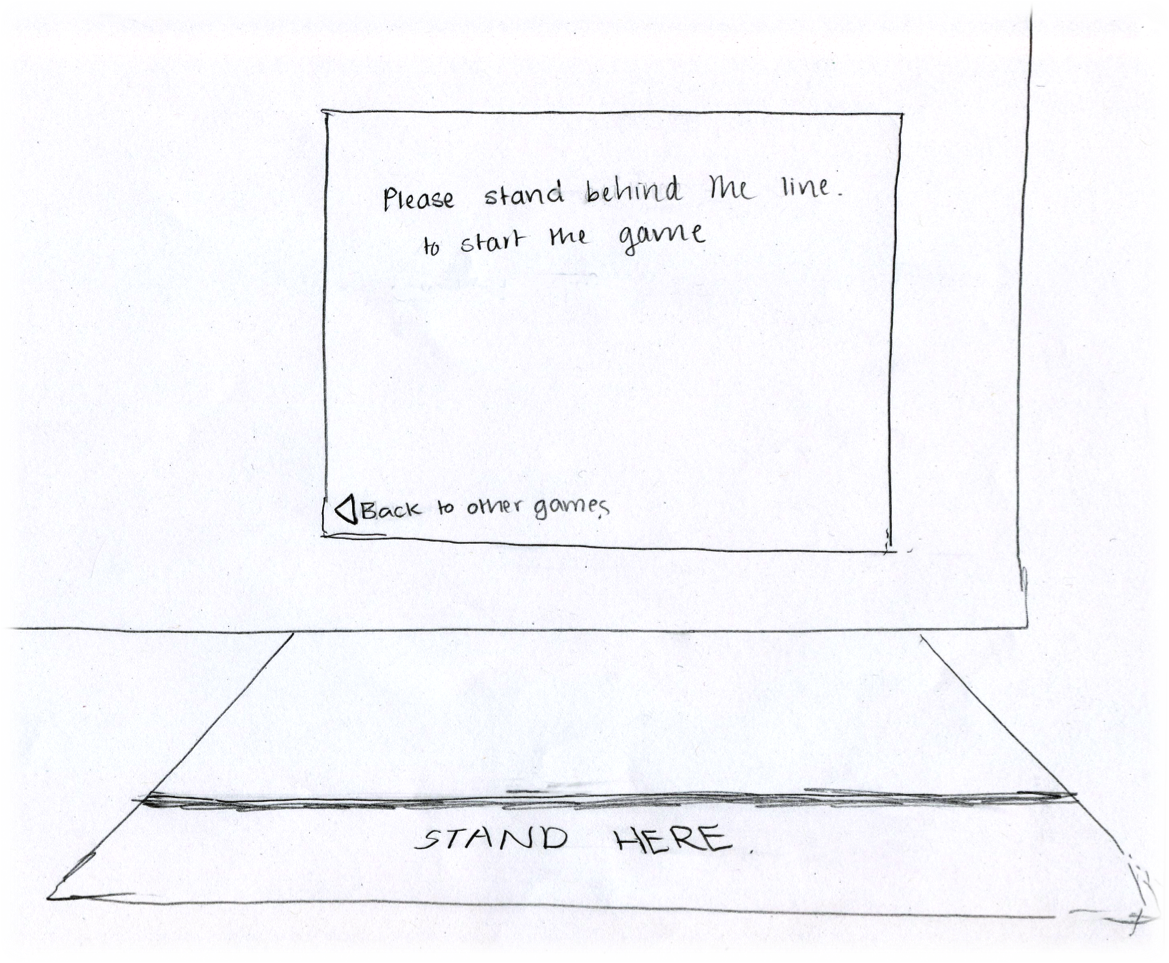 Please stand behind the line.
to start the game
Back to other games
STAND HERE.